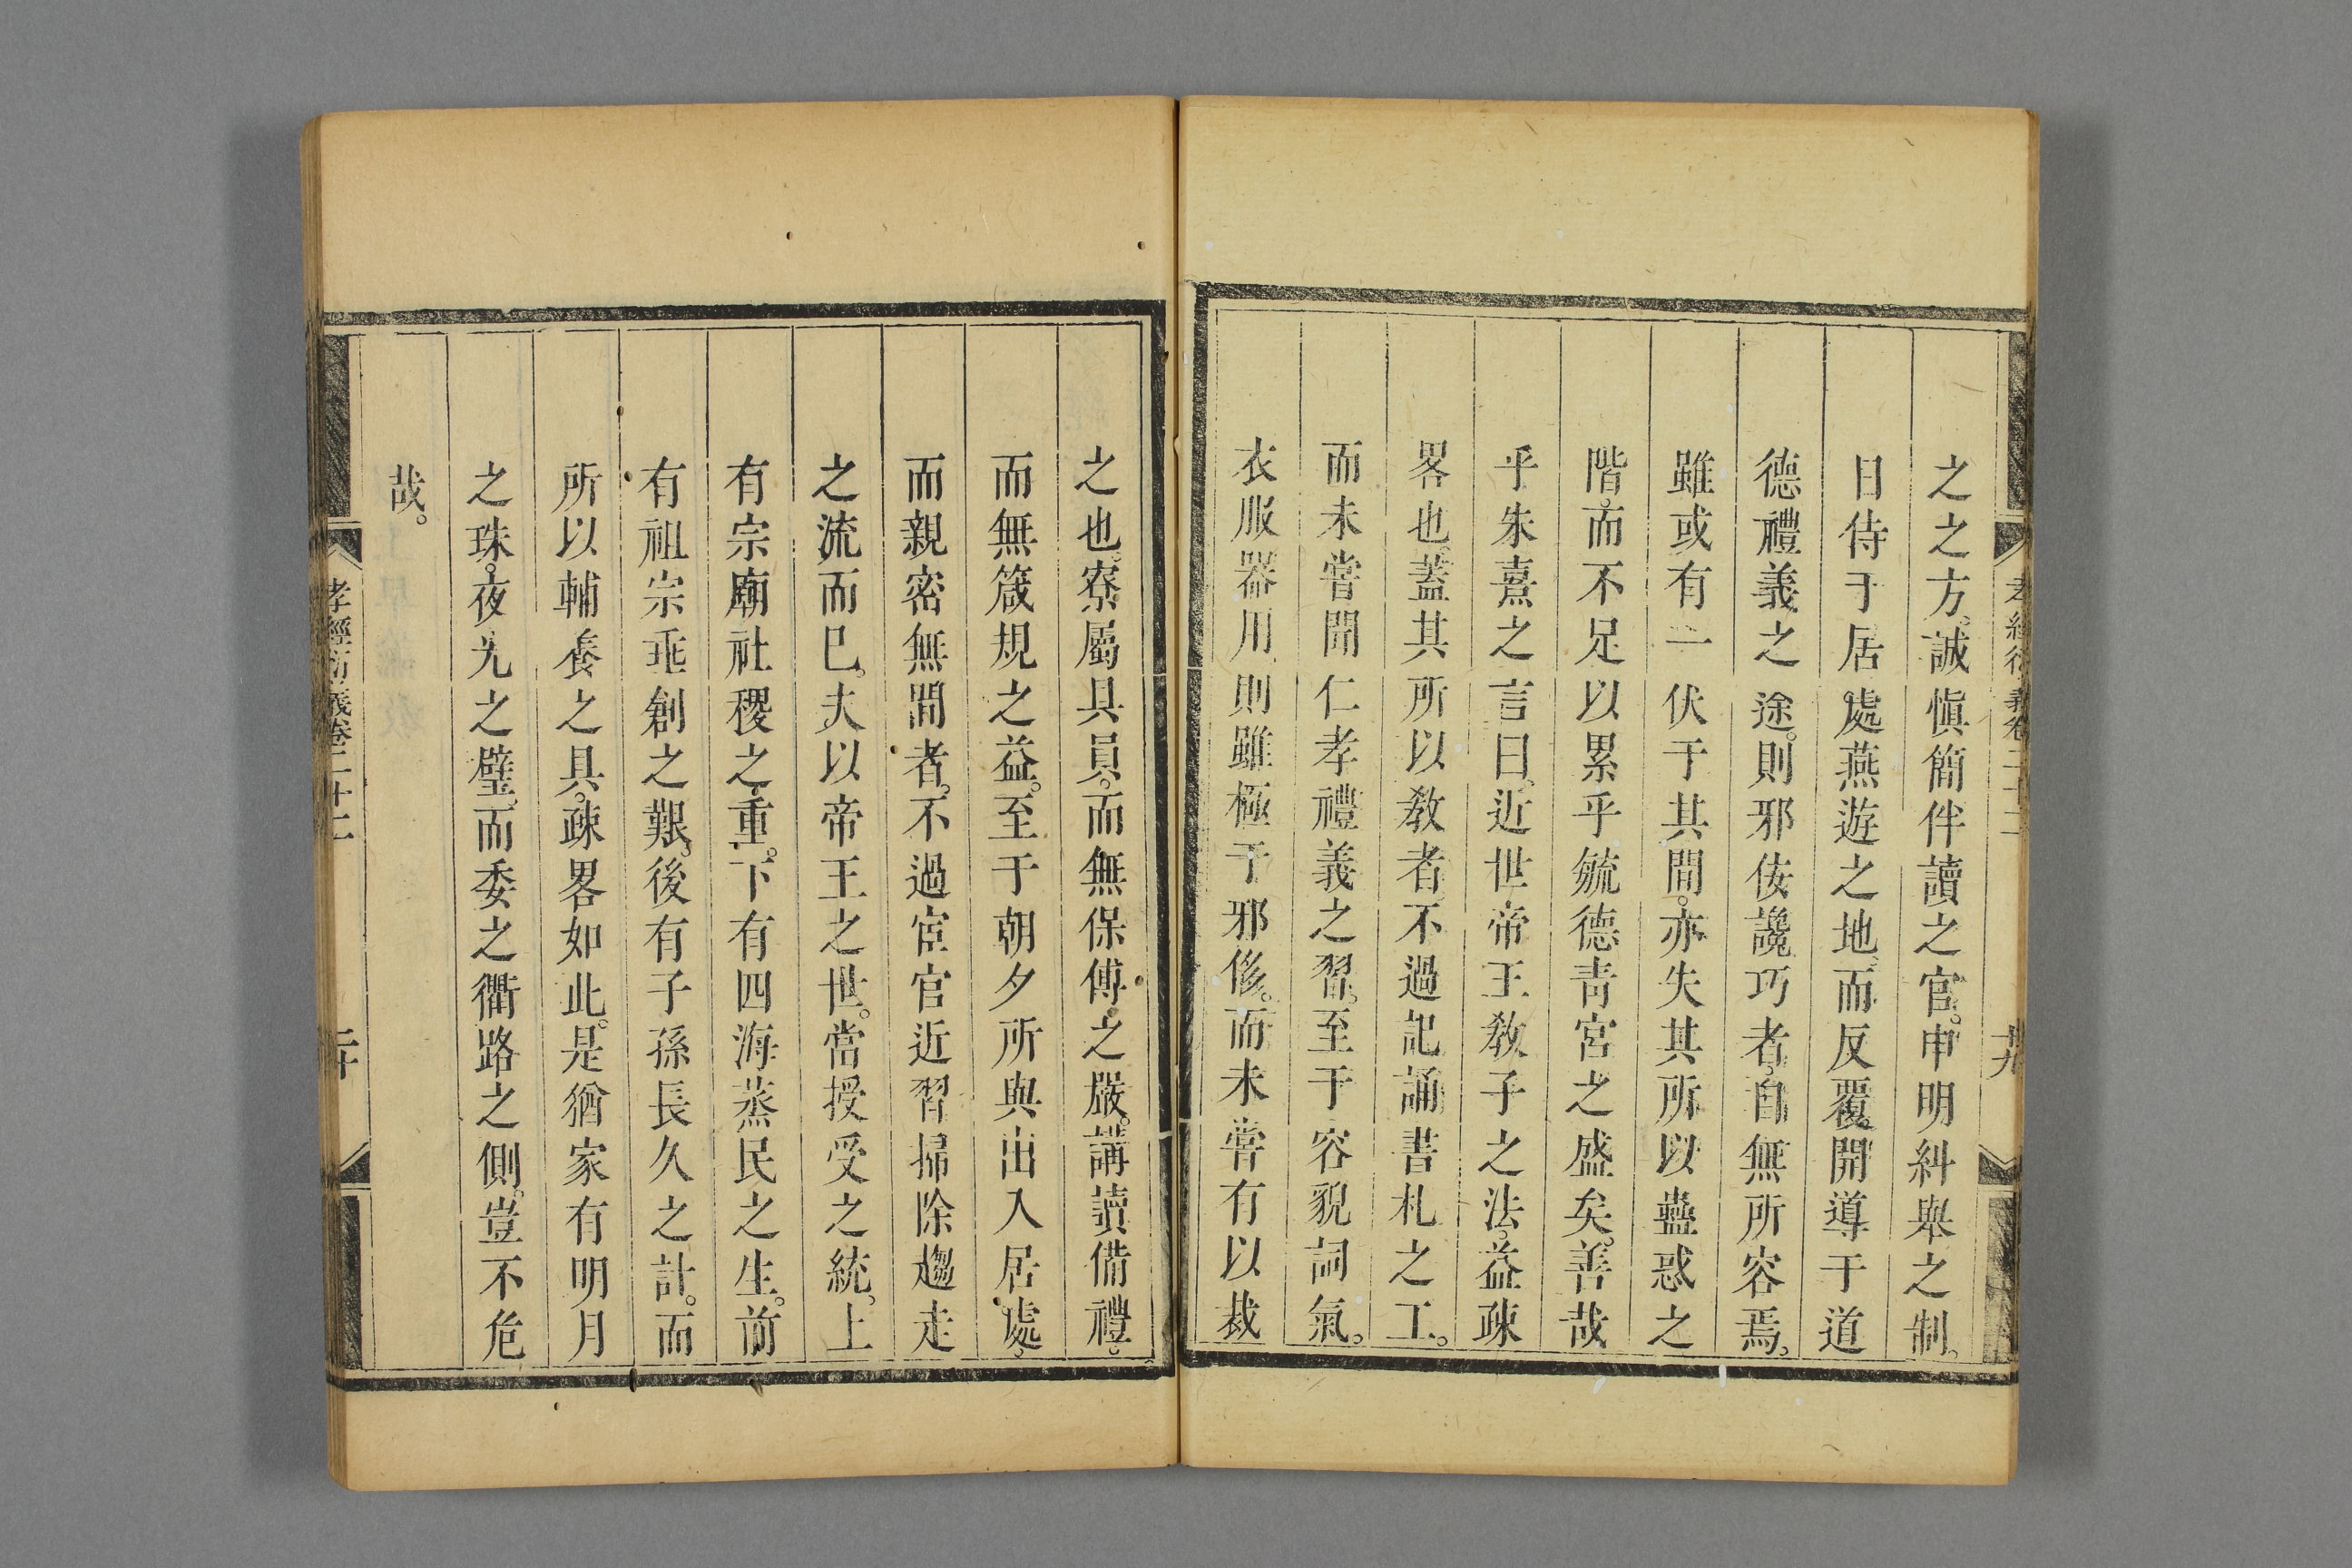 孝經衍義卷二十二
十九
之之方。誠愼簡伴讀之官。申明糾舉之制。
日侍于居處燕遊之地。而反覆開導于道
德禮義之途。則邪佞讒巧者。自無所容焉。
雖或有一伏于其間。亦失其所以蠱惑之
階。而不足以累乎毓德靑宮之盛矣。善哉
乎朱熹之言曰。近世帝王敎子之法。益疎
畧也。蓋其所以敎者。不過記誦書札之工。
而未嘗聞仁孝禮義之習。至于容貌詞氣。
衣服器用。則雖極于邪侈。而未嘗有以裁
之也。寮屬具員。而無保傅之嚴。講讀備禮。
而無箴規之益。至于朝夕所與出入居處。
而親密無間者。不過宦官近習掃除趨走
之流而已。夫以帝王之世。當授受之統。上
有宗廟社稷之重。下有四海蒸民之生。前
有祖宗垂創之艱。後有子孫長久之計。而
所以輔養之具。疎畧如此。是猶家有明月
之珠。夜光之璧。而委之衢路之側。豈不危
哉。
孝經衍義卷二十二
二十